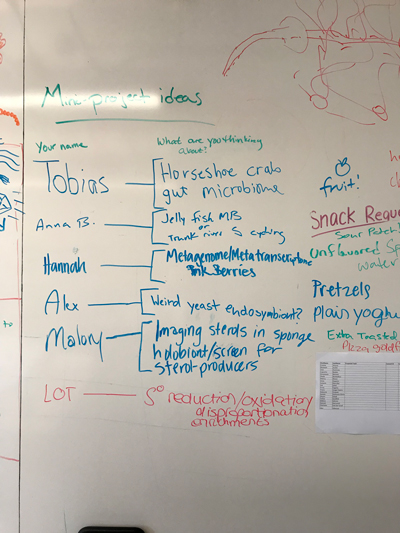 Mini-project ideas
Your name
What are you thinking about?
Tobias
Horseshoe crab
gut microbiome
Anna B.
Jelly fish MB
or
Trunk river S cycling
Hannah
Metagenome/Metatranscriptome
Pink Berries
Alex
Weird yeast endosymbiont?
Malory
Imaging sterols in sponge
holobiont/screen for
sterol-producers
LOT
S° reduction/oxidation/
disproportionation
enrichments
fruit!
Snack Reque
Sour Patch
Unflavored Sp
water
Pretzels
plain yoghu
Extra Toasted
Pizza goldf
to